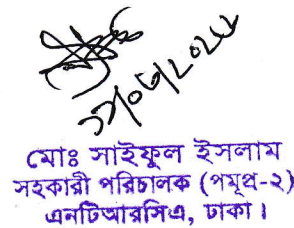 মোঃ সাইফুল ইসলাম
সহকারী পরিচালক (পমূপ্র-২)
এনটিআরসিএ, ঢাকা।